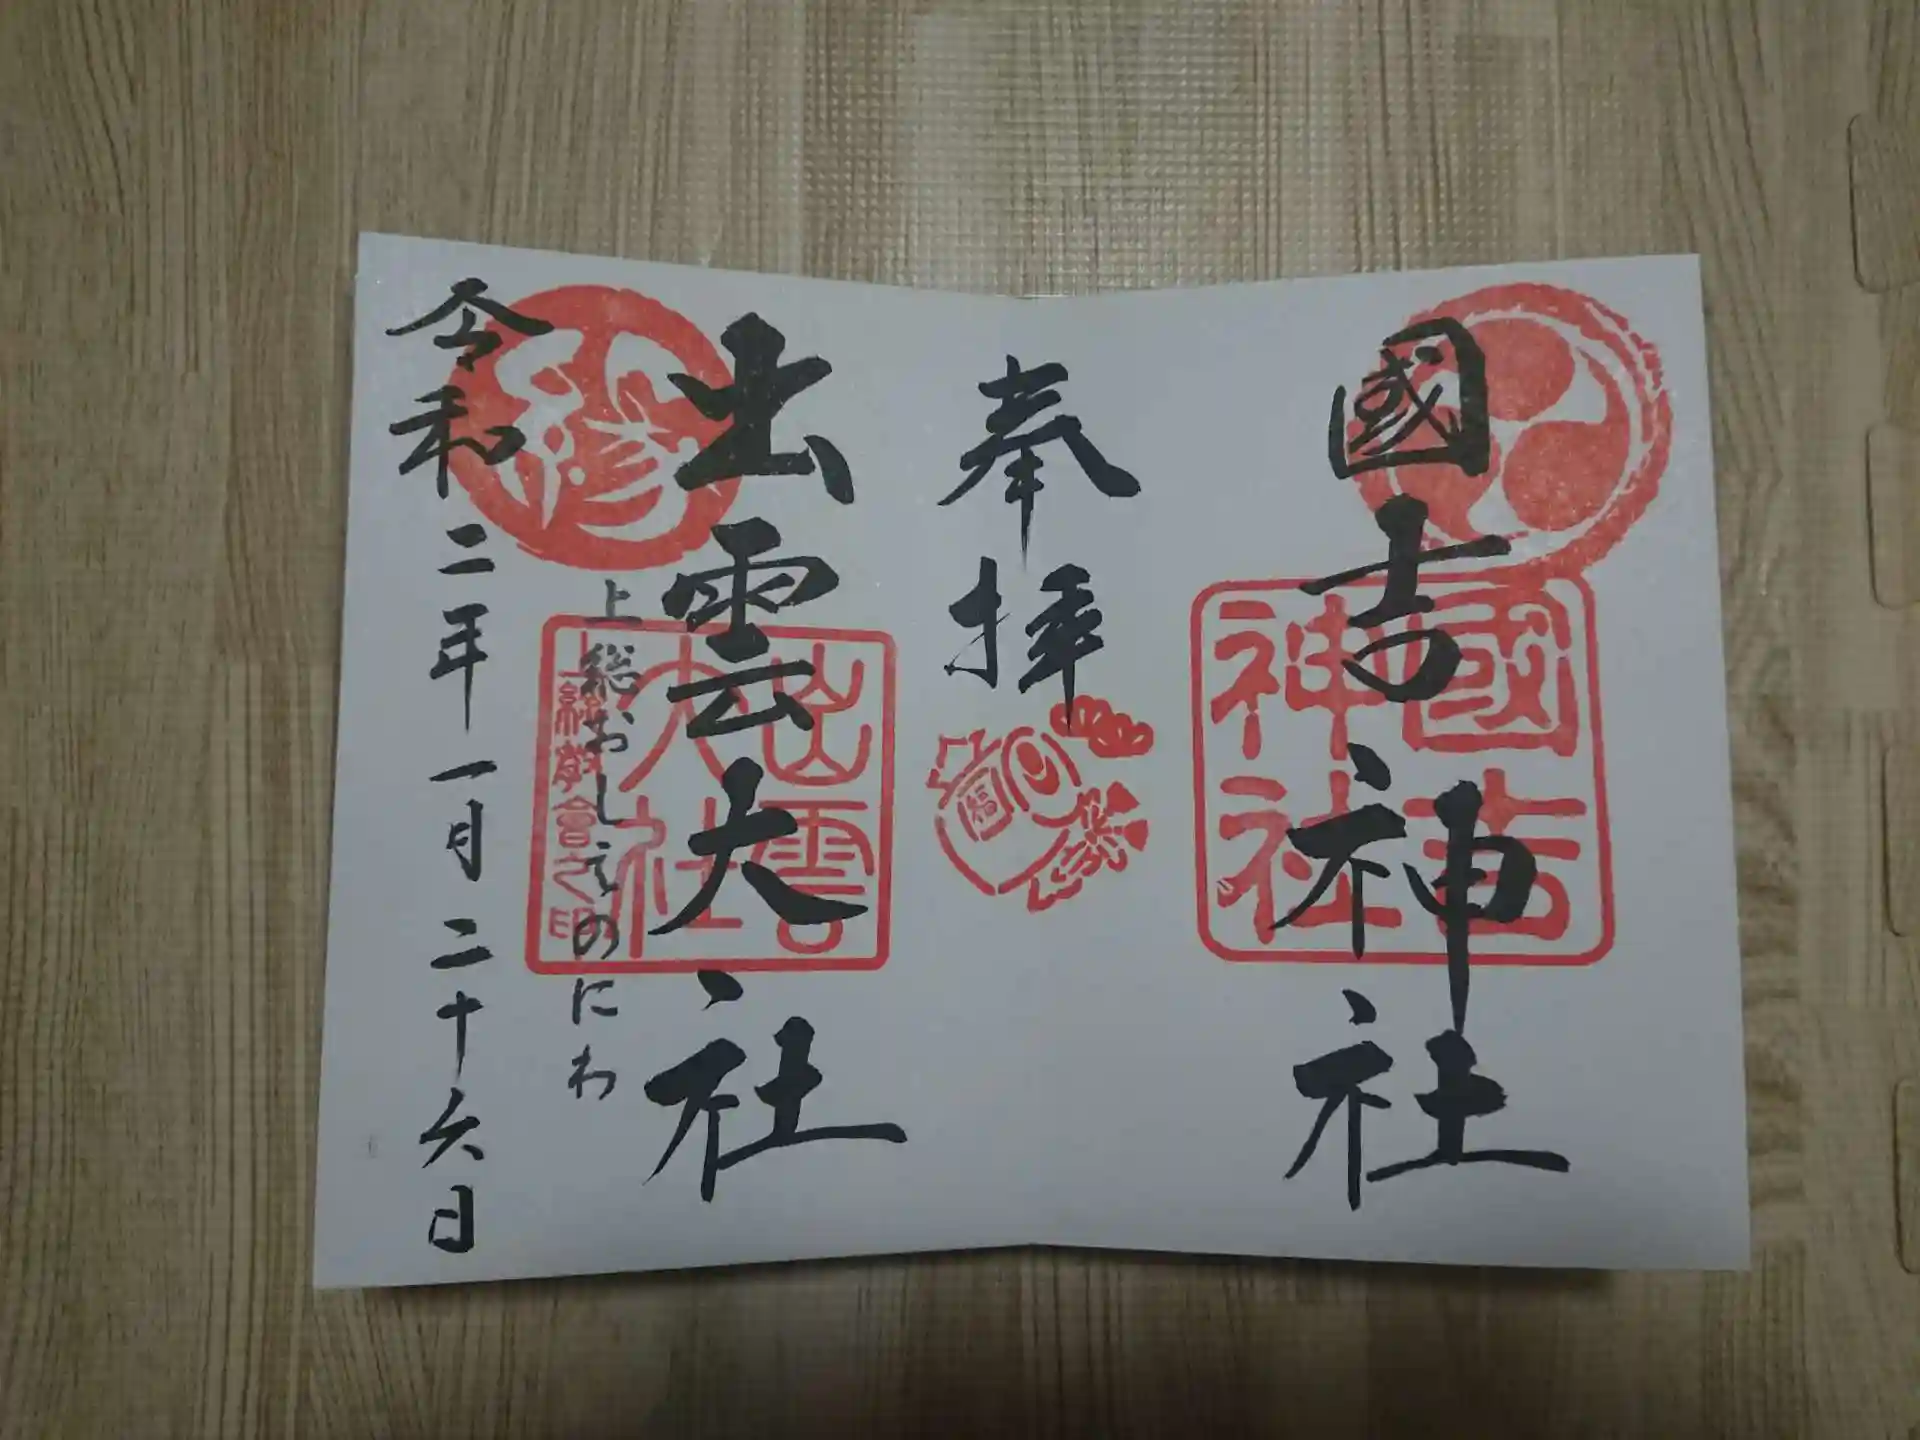 國吉神社
國吉
神社
奉拝
福
出雲大社
出雲
大社
上総教會之印
上総おしえのにわ
縁
令和二年一月二十六日